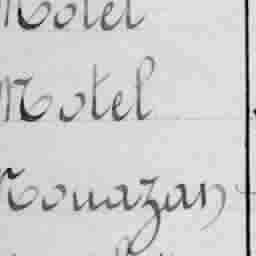 Motel
Motel
Nouazan